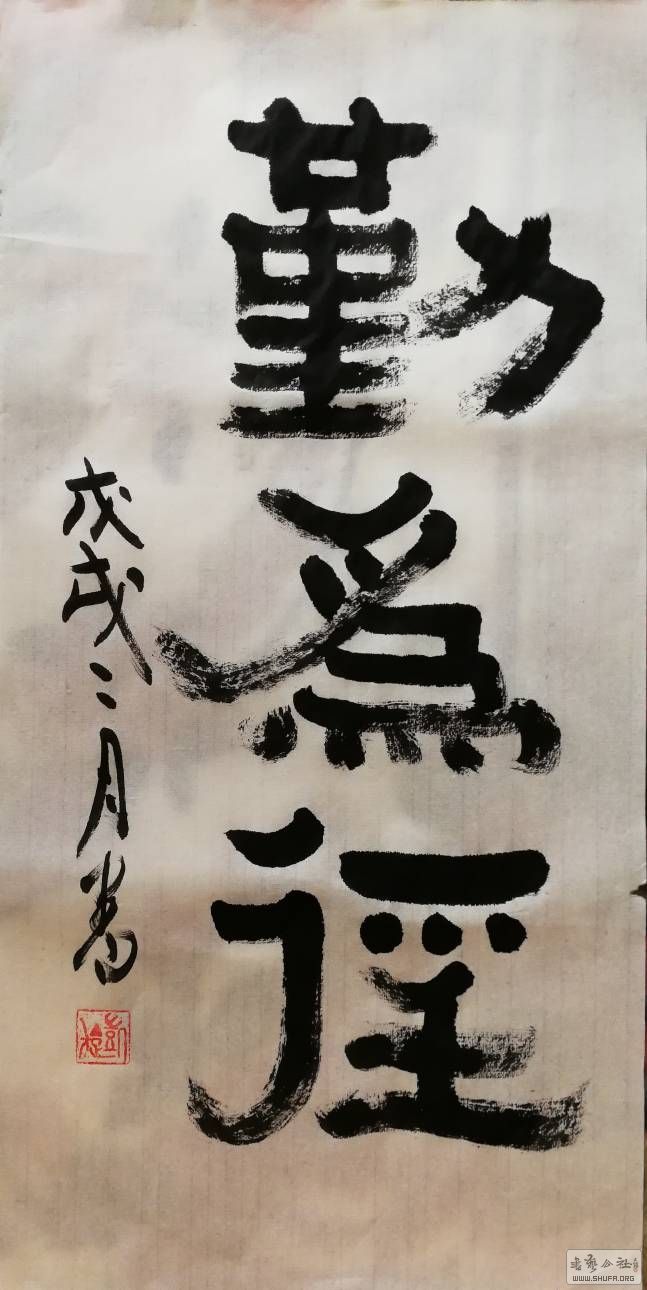 勤為徑
戊戌二月書
書艺公社
WWW.SHUFA.ORG